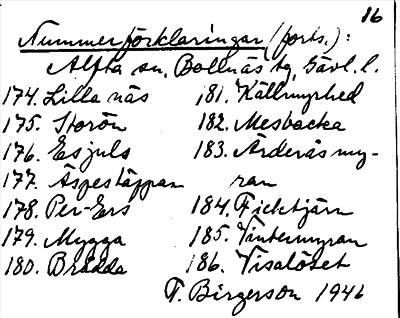 16
Nummerförklaringar (forts.):
Alfta sn, Bollnäs tg, Gävl. l.
174. Lilla näs
175. Storön
176. Esjuls
177. Äspestäppan
178. Per-Ers
179. Mygga
180. Brådda
181. Källmyrhed
182. Mesbacka
183. Ärderåsmy-
ran
184. Ficktjärn
185. Vintermyran
186. Visalöset
F. Birgerson 1946